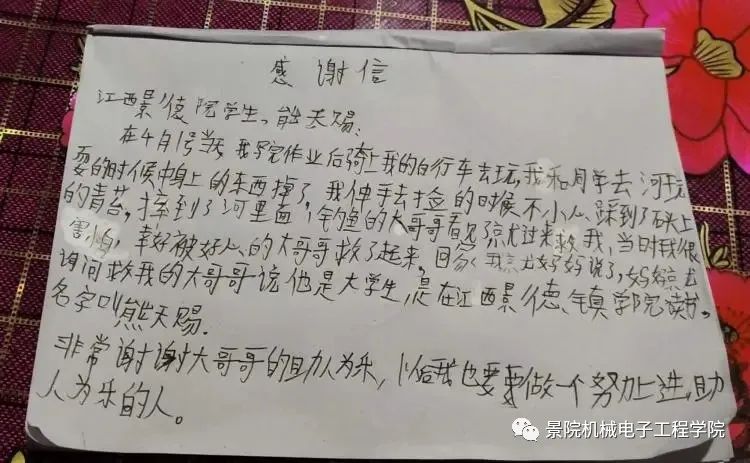 感谢信
江西景德院学生、熊天赐:
在4月1号当天我写完作业后骑上我的自行车去玩,我和同学去河玩
耍的时候身上的东西掉了,我伸手去捡的时候不小心踩到了石头上
的青苔,摔到了河里面,钓鱼的大哥哥看见了就过来救我,当时我很
害怕,幸好被好心的大哥哥救了起来。回家我就好妈说了,妈妈就
询问救我的大哥哥说他是大学生,是在江西景德镇学院读书。
名字叫熊天赐.
非常谢谢大哥哥的助人为乐,以后我也要做一个努力上进,助
人为乐的人。
景院机械电子工程学院